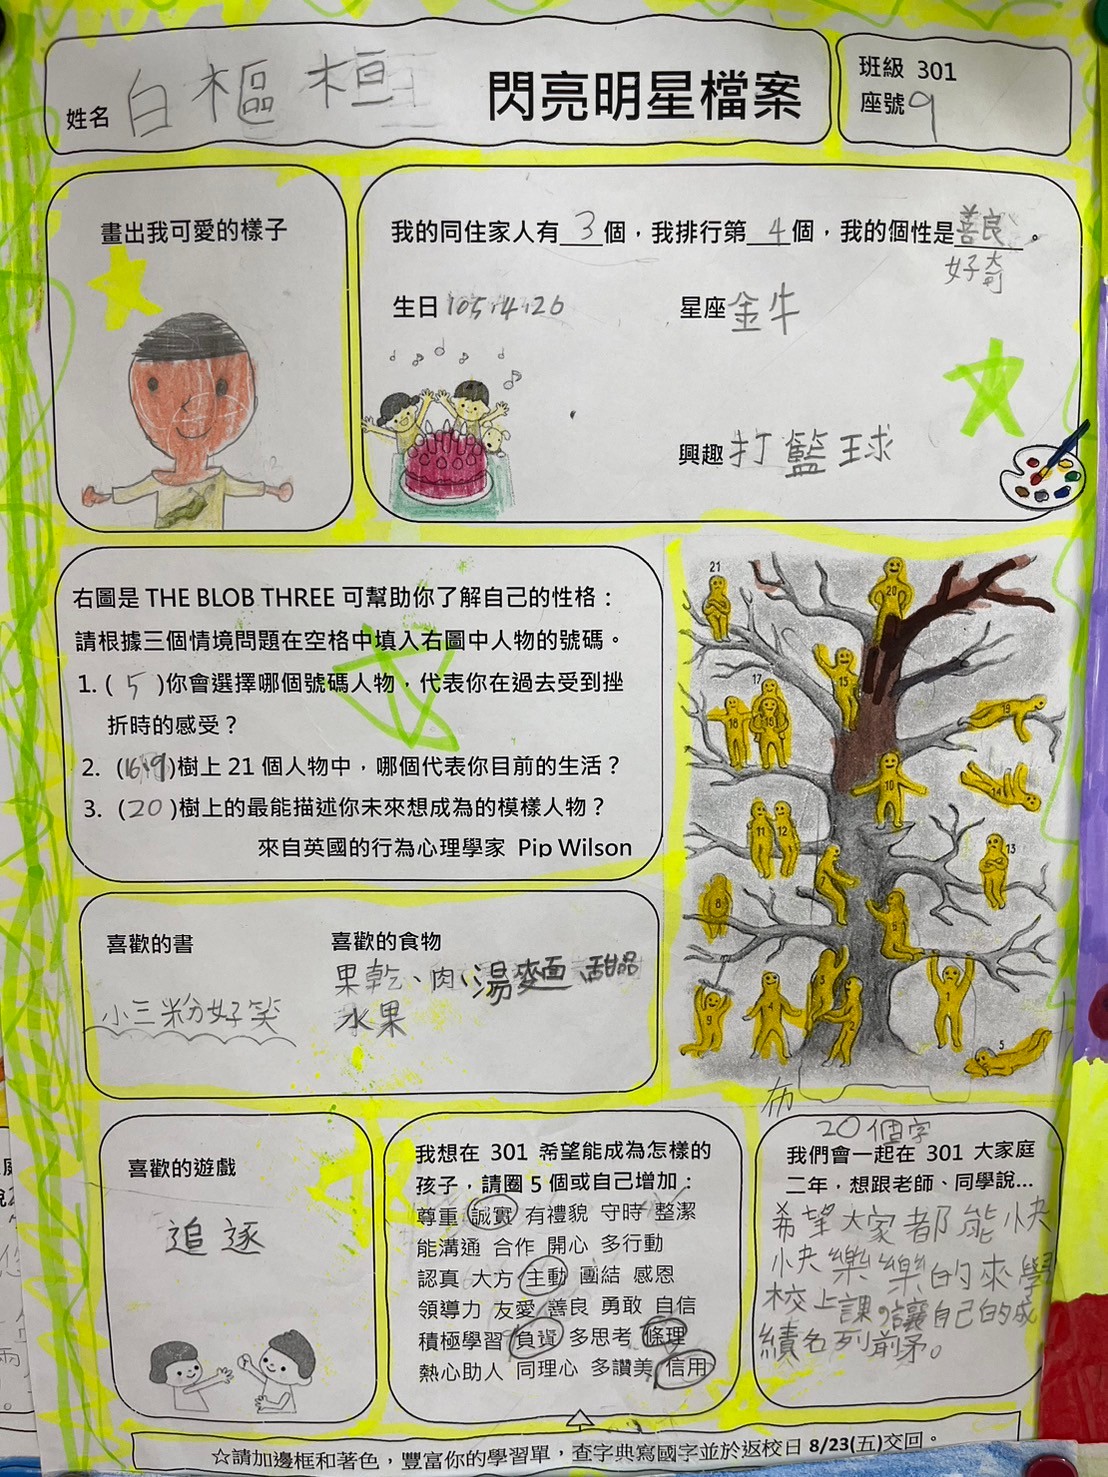 姓名 白樞桓
閃亮明星檔案
班級 301
座號9
畫出我可愛的樣子
我的同住家人有3個，我排行第4個，我的個性是善良。
好奇
生日 105.4.26
星座金牛
興趣打籃球
右圖是 THE BLOB THREE 可幫助你了解自己的性格：
請根據三個情境問題在空格中填入右圖中人物的號碼。
1. ( 5 )你會選擇哪個號碼人物，代表你在過去受到挫
折時的感受？
2. (16.19)樹上 21 個人物中，哪個代表你目前的生活？
3. (20)樹上的最能描述你未來想成為的模樣人物？
來自英國的行為心理學家 Pip Wilson
21
20
15
17
16
18
19
10
14
11
12
13
8
9
4
2
1
5
喜歡的書
小三粉好笑
喜歡的食物
果乾、肉、湯麵、甜品
水果
喜歡的遊戲
追逐
我想在 301 希望能成為怎樣的
孩子，請圈 5 個或自己增加：
尊重 誠實 有禮貌 守時 整潔
能溝通 合作 開心 多行動
認真 大方 主動 團結 感恩
領導力 友愛 善良 勇敢 自信
積極學習 負責 多思考 條理
熱心助人 同理心 多讚美 信用
20個字
我們會一起在 301 大家庭
二年，想跟老師、同學說...
希望大家都能快
快樂樂的來學
校上課,讓自己的成
績名列前矛。
☆請加邊框和著色，豐富你的學習單，查字典寫國字並於返校日 8/23(五)交回。